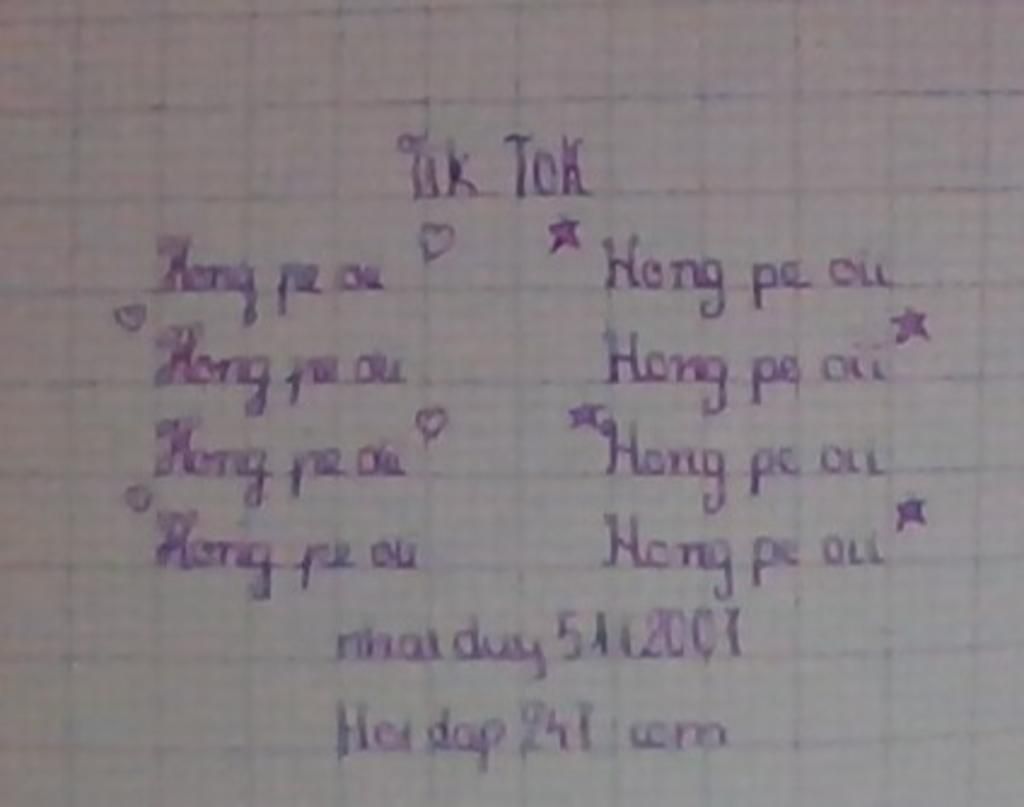 Tik Tok
Hong pe ou Hong pe ou
Hong pe ou Hong pe ou
Hong pe ou Hong pe ou
Hong pe ou Hong pe ou
nhat duy
Hoi dap 247 com